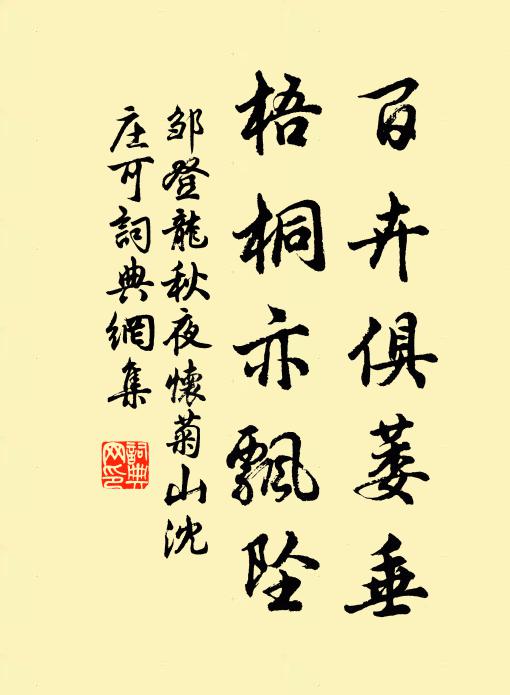 百卉俱萎垂
梧桐亦飄墜
邹登龍秋夜懷菊山沈
庄可詞典網集
詞典
网印